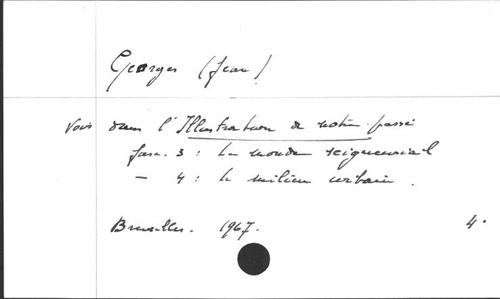 Georges (Jean)
Voir dans l'Illustration de notre passé
fasc. 3 : Le monde seigneurial
— 4 : Le milieu urbain.
Bruxelles. 1967. 4°